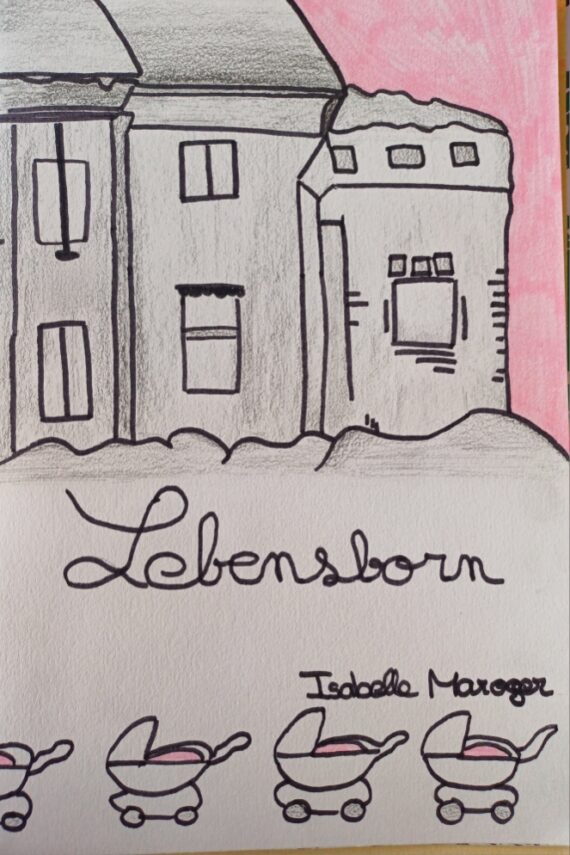 Lebensborn
Isabelle Maroger